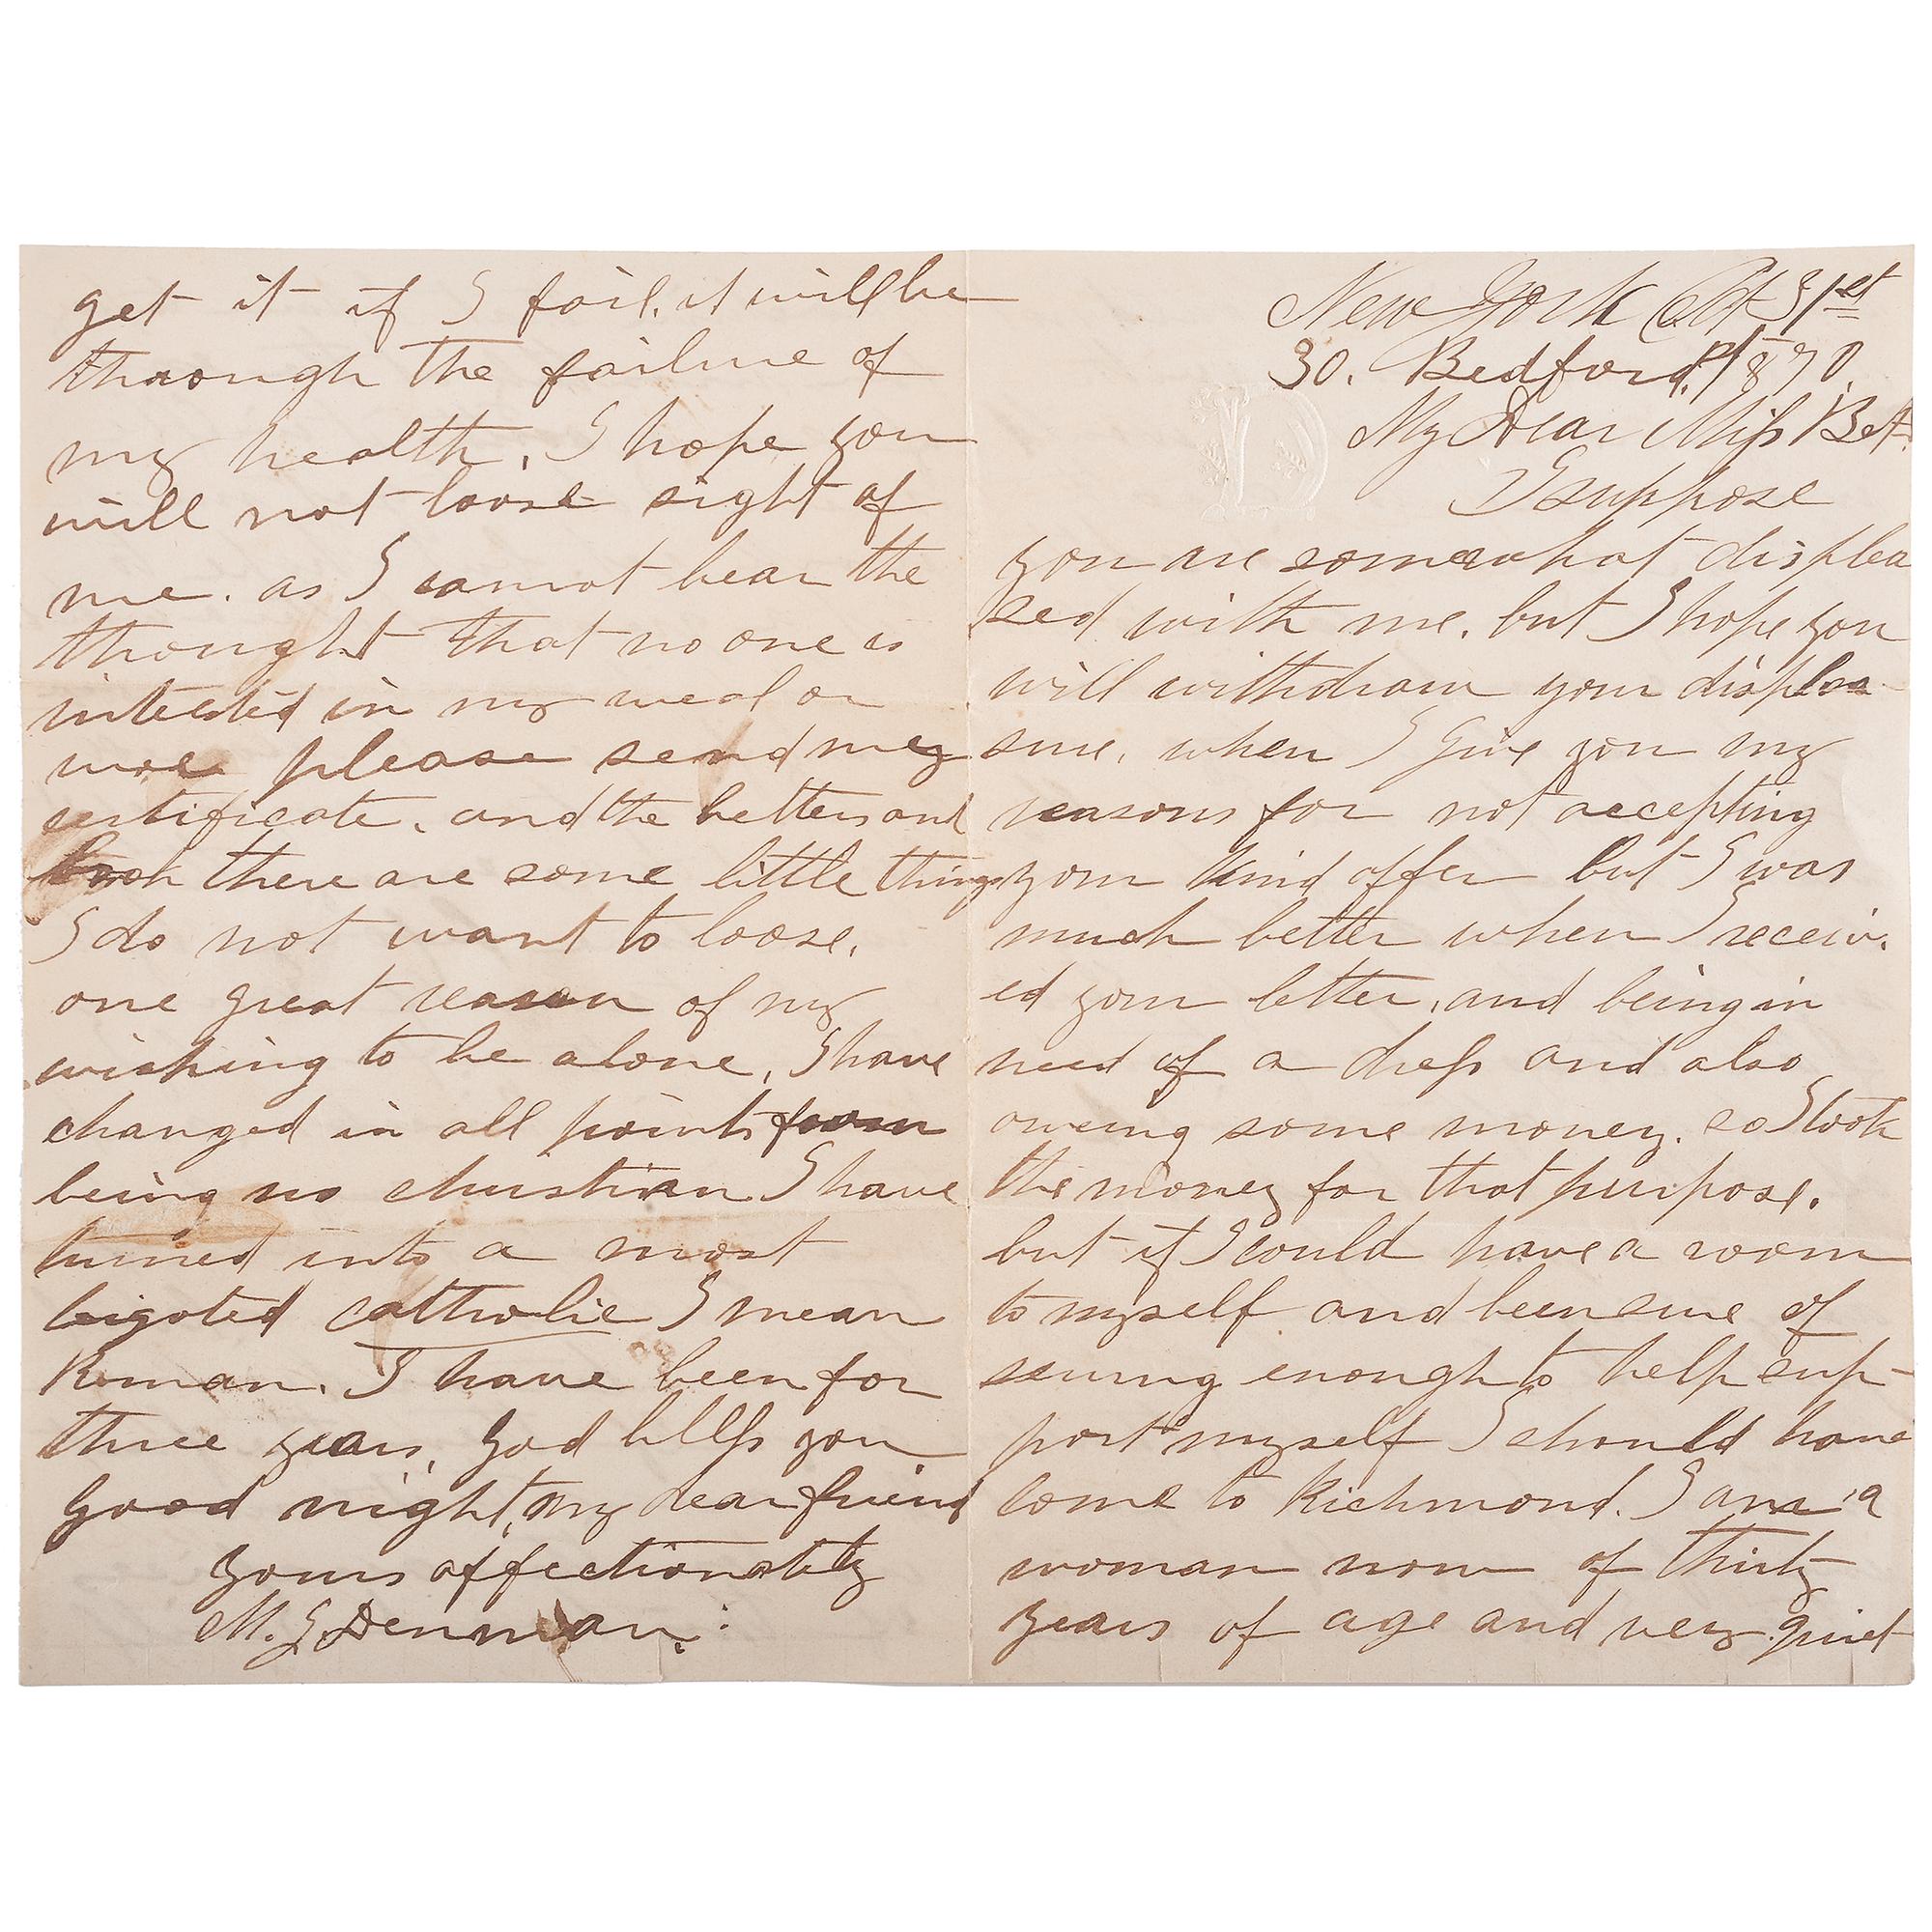 New York Oct 31st
30. Bedford. 1870.
My Dear Miss Bet.
I suppose
you are somewhat displea
sed with me. but I hope you
will withdraw your displea
sure, when I give you my
reasons for not accepting
your kind offer but I was
much better when I receiv.
ed your letter, and being in
need of a dress and also
oweing some money. so I took
the money for that purpose.
but if I could have a room
to myself and been sure of
sewing enough to help sup-
port myself I should have
come to Richmond. I am a
woman now of thirty
years of age and very quiet
get it if I fail. it will be
through the failure of
my health. I hope you
will not loose sight of
me. as I cannot bear the
thought that no one is
intersted in my weal or
woe please send my
certificate. and the letters and
book there are some little things
I do not want to loose.
one great reason of my
wishing to be alone, I have
changed in all points from
being no christian I have
turned into a most
bigoted catholic I mean
Roman. I have been for
three years, God bless you
good night, my dear friend
yours affectionately
M. J. Denman.